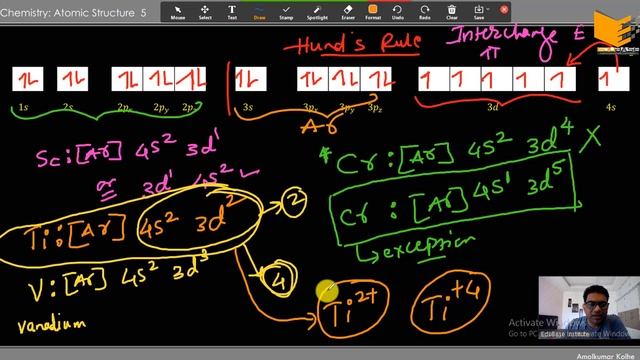 Chemistry: Atomic Structure 5
Mouse Select Text Draw Stamp Spotlight Eraser Format Undo Redo Clear Save
Hund's Rule
Interchange E
π
1s 2s 2px 2py 2pz 3s 3px 3py 3pz 3d 4s
Ar
Sc:[Ar] 4s² 3d¹
or 3d¹ 4s²
Ti:[Ar] 4s² 3d² → 2
V:[Ar] 4s² 3d³ 4
vanadium
* Cr:[Ar] 4s² 3d⁴ X
Cr :[Ar] 4s¹ 3d⁵
↳ exception
Ti²⁺ Ti⁺⁴
Activate Windows
Go to PC
EduBase Institute
Amolkumar Kolhe